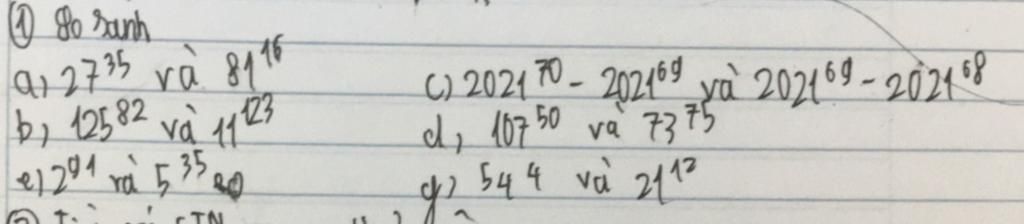 ① So sánh
a, 27^35 và 81^16
c) 2021^70 - 2021^69 và 2021^69 - 2021^68
b, 125^82 và 11^123
d, 107^50 và 73^75
e) 2^91 và 5^35
g) 54^4 và 21^12